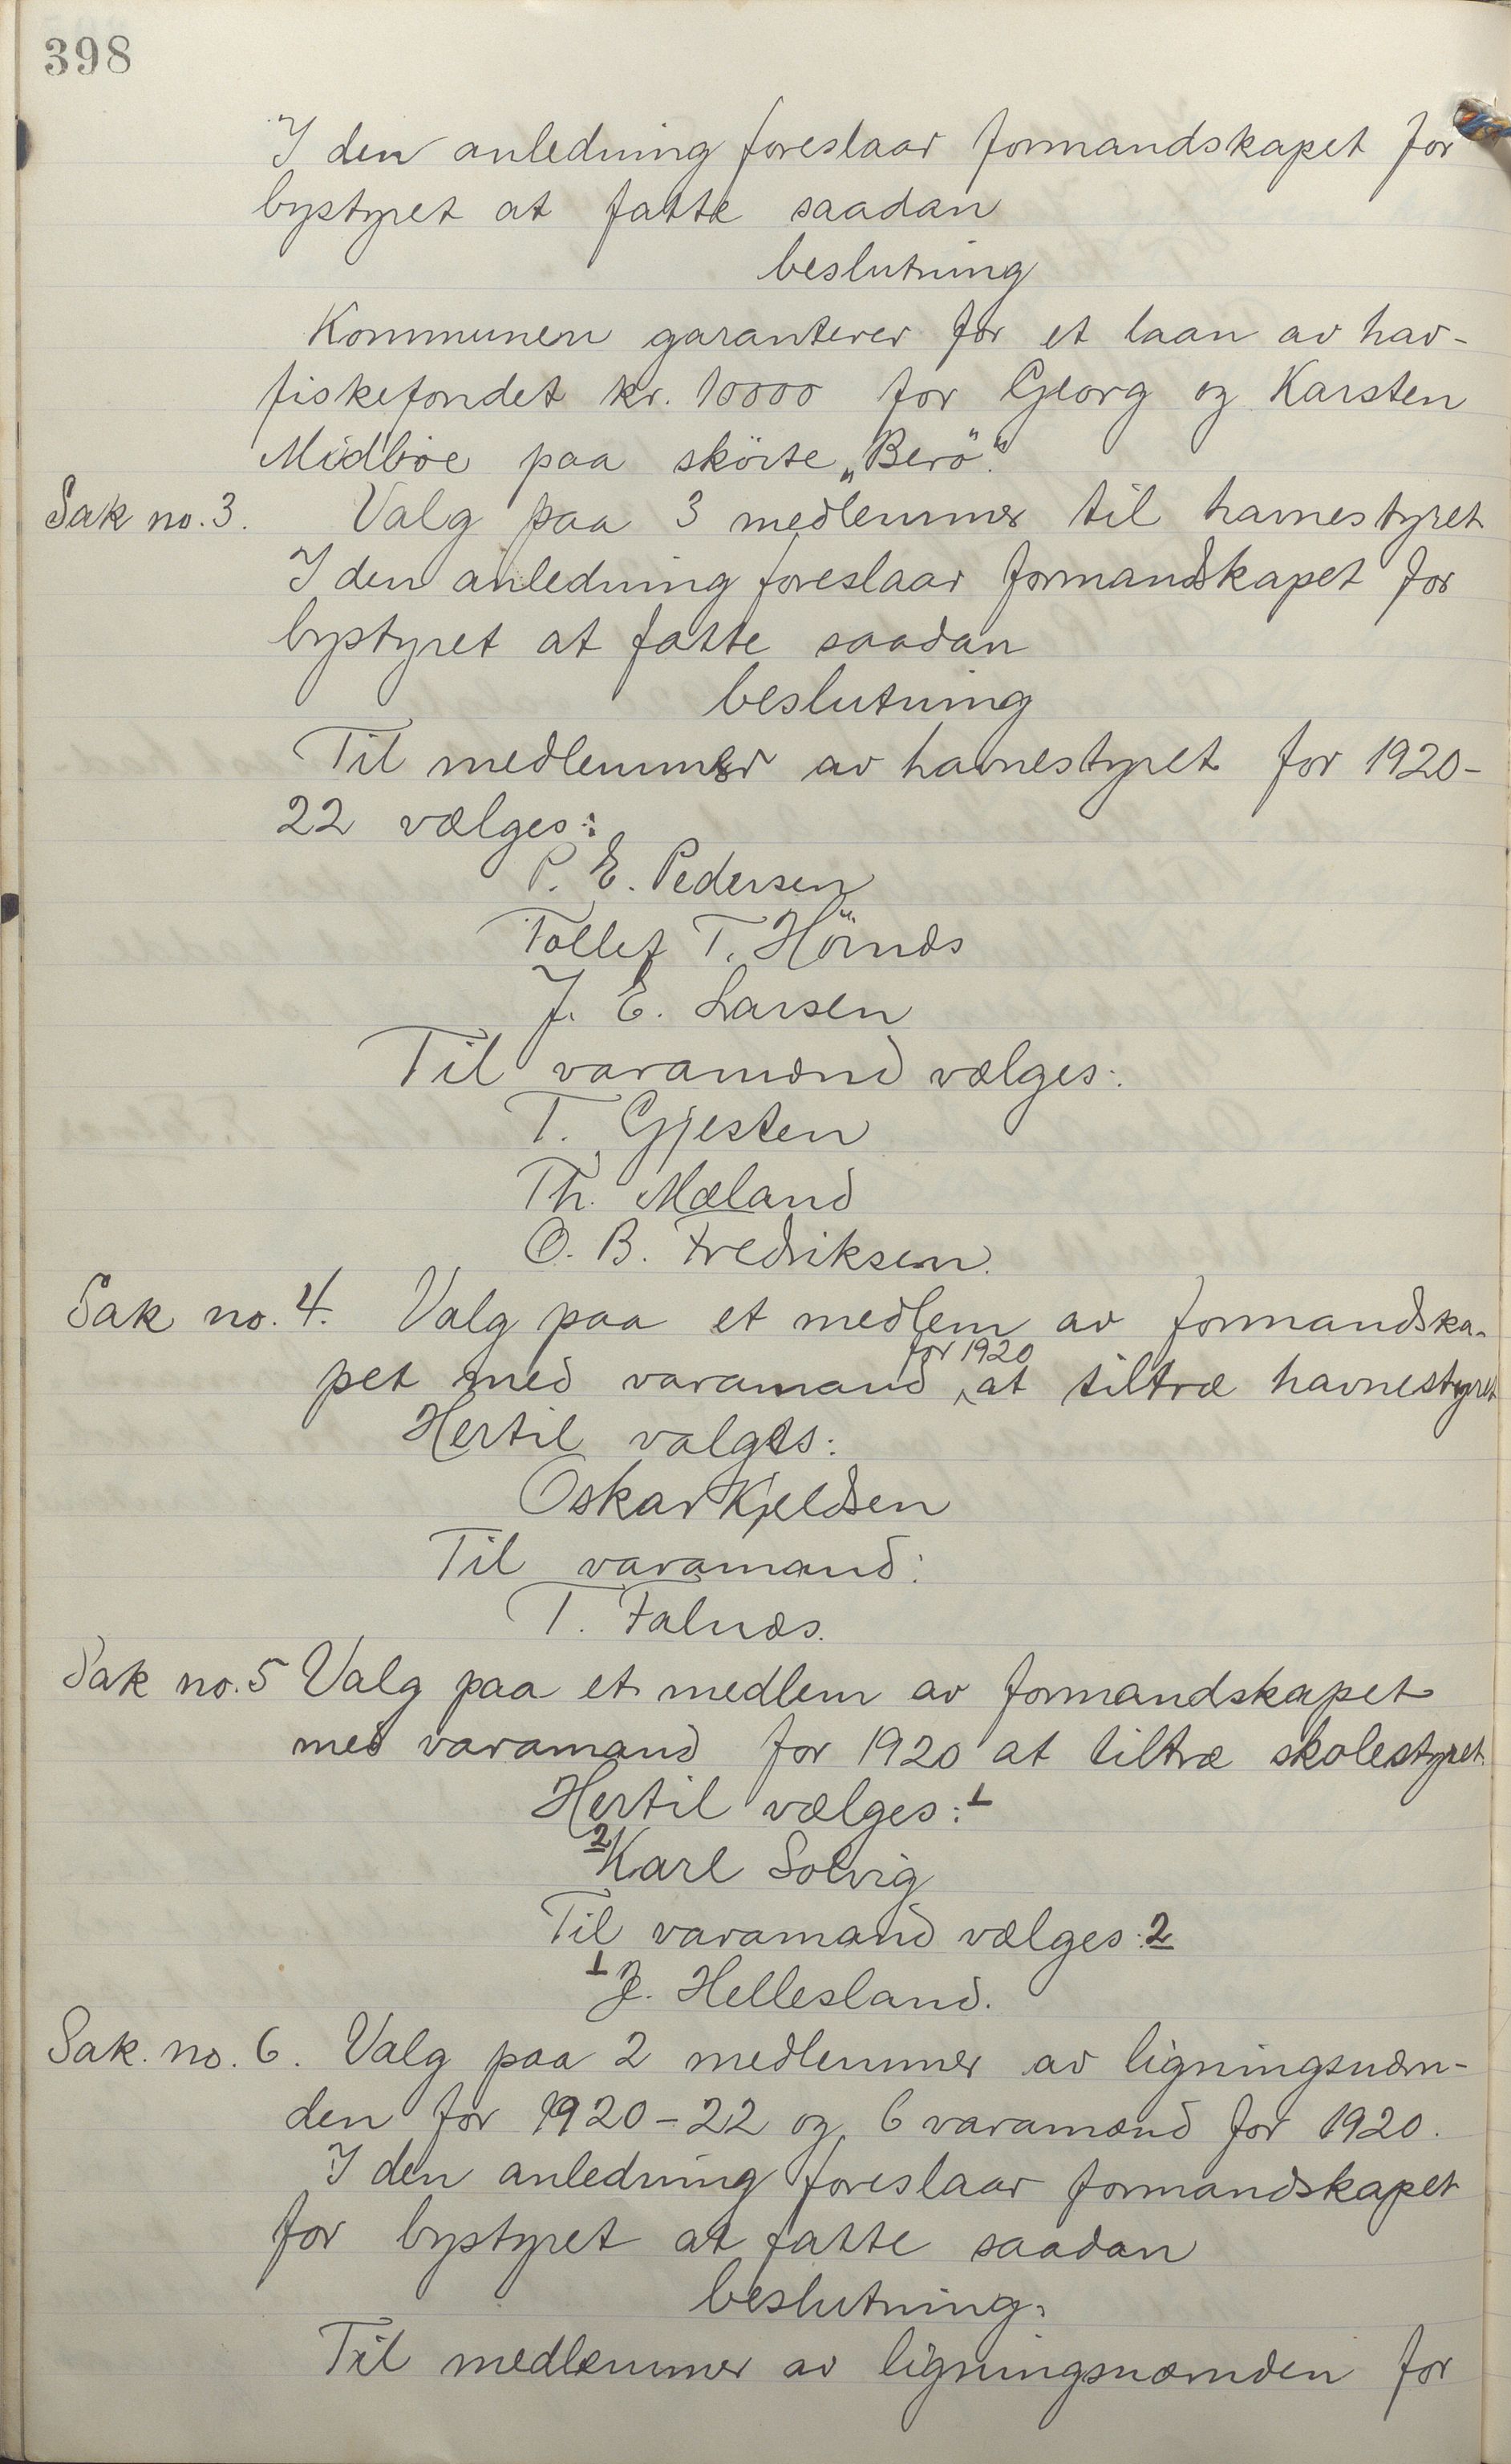 398
I den anledning foreslaar formandskapet for
bystyret at fatte saadan
beslutning
Kommunen garanterer for et laan av hav-
fiskefondet kr. 10000 for Georg og Karsten
Midbøe paa skøite „Berø“.
Sak no. 3. Valg paa 3 medlemmer til havnestyret
I den anledning foreslaar formandskapet for
bystyret at fatte saadan
beslutning
Til medlemmer av havnestyret for 1920-
22 vælges:
P. E. Pedersen
Tollef T. Hönæs
J. E. Larsen
Til varamænd vælges:
T. Gjesten
Th. Mæland
O. B. Fredriksen.
Sak no. 4. Valg paa et medlem av formandska-
for 1920
pet med varamand at tiltræ havnestyret
Hertil valgtes:
Oskar Kjeldsen
Til varamand:
T. Falnæs.
Sak no. 5 Valg paa et medlem av formandskapet
med varamand for 1920 at tiltræ skolestyret.
Hertil vælges: 1
2 Karl Solvig
Til varamand vælges: 2
1 J. Hellesland.
Sak. no. 6. Valg paa 2 medlemmer av ligningsnæm-
den for 1920-22 og 6 varamænd for 1920.
I den anledning foreslaar formandskapet
for bystyret at fatte saadan
beslutning.
Til medlemmer av ligningsnæmden for